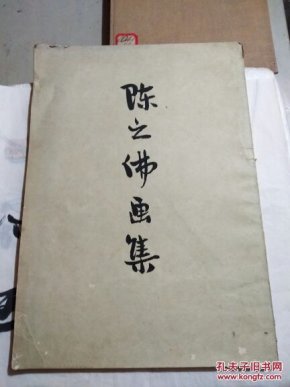 陈之佛画集
孔夫子旧书网